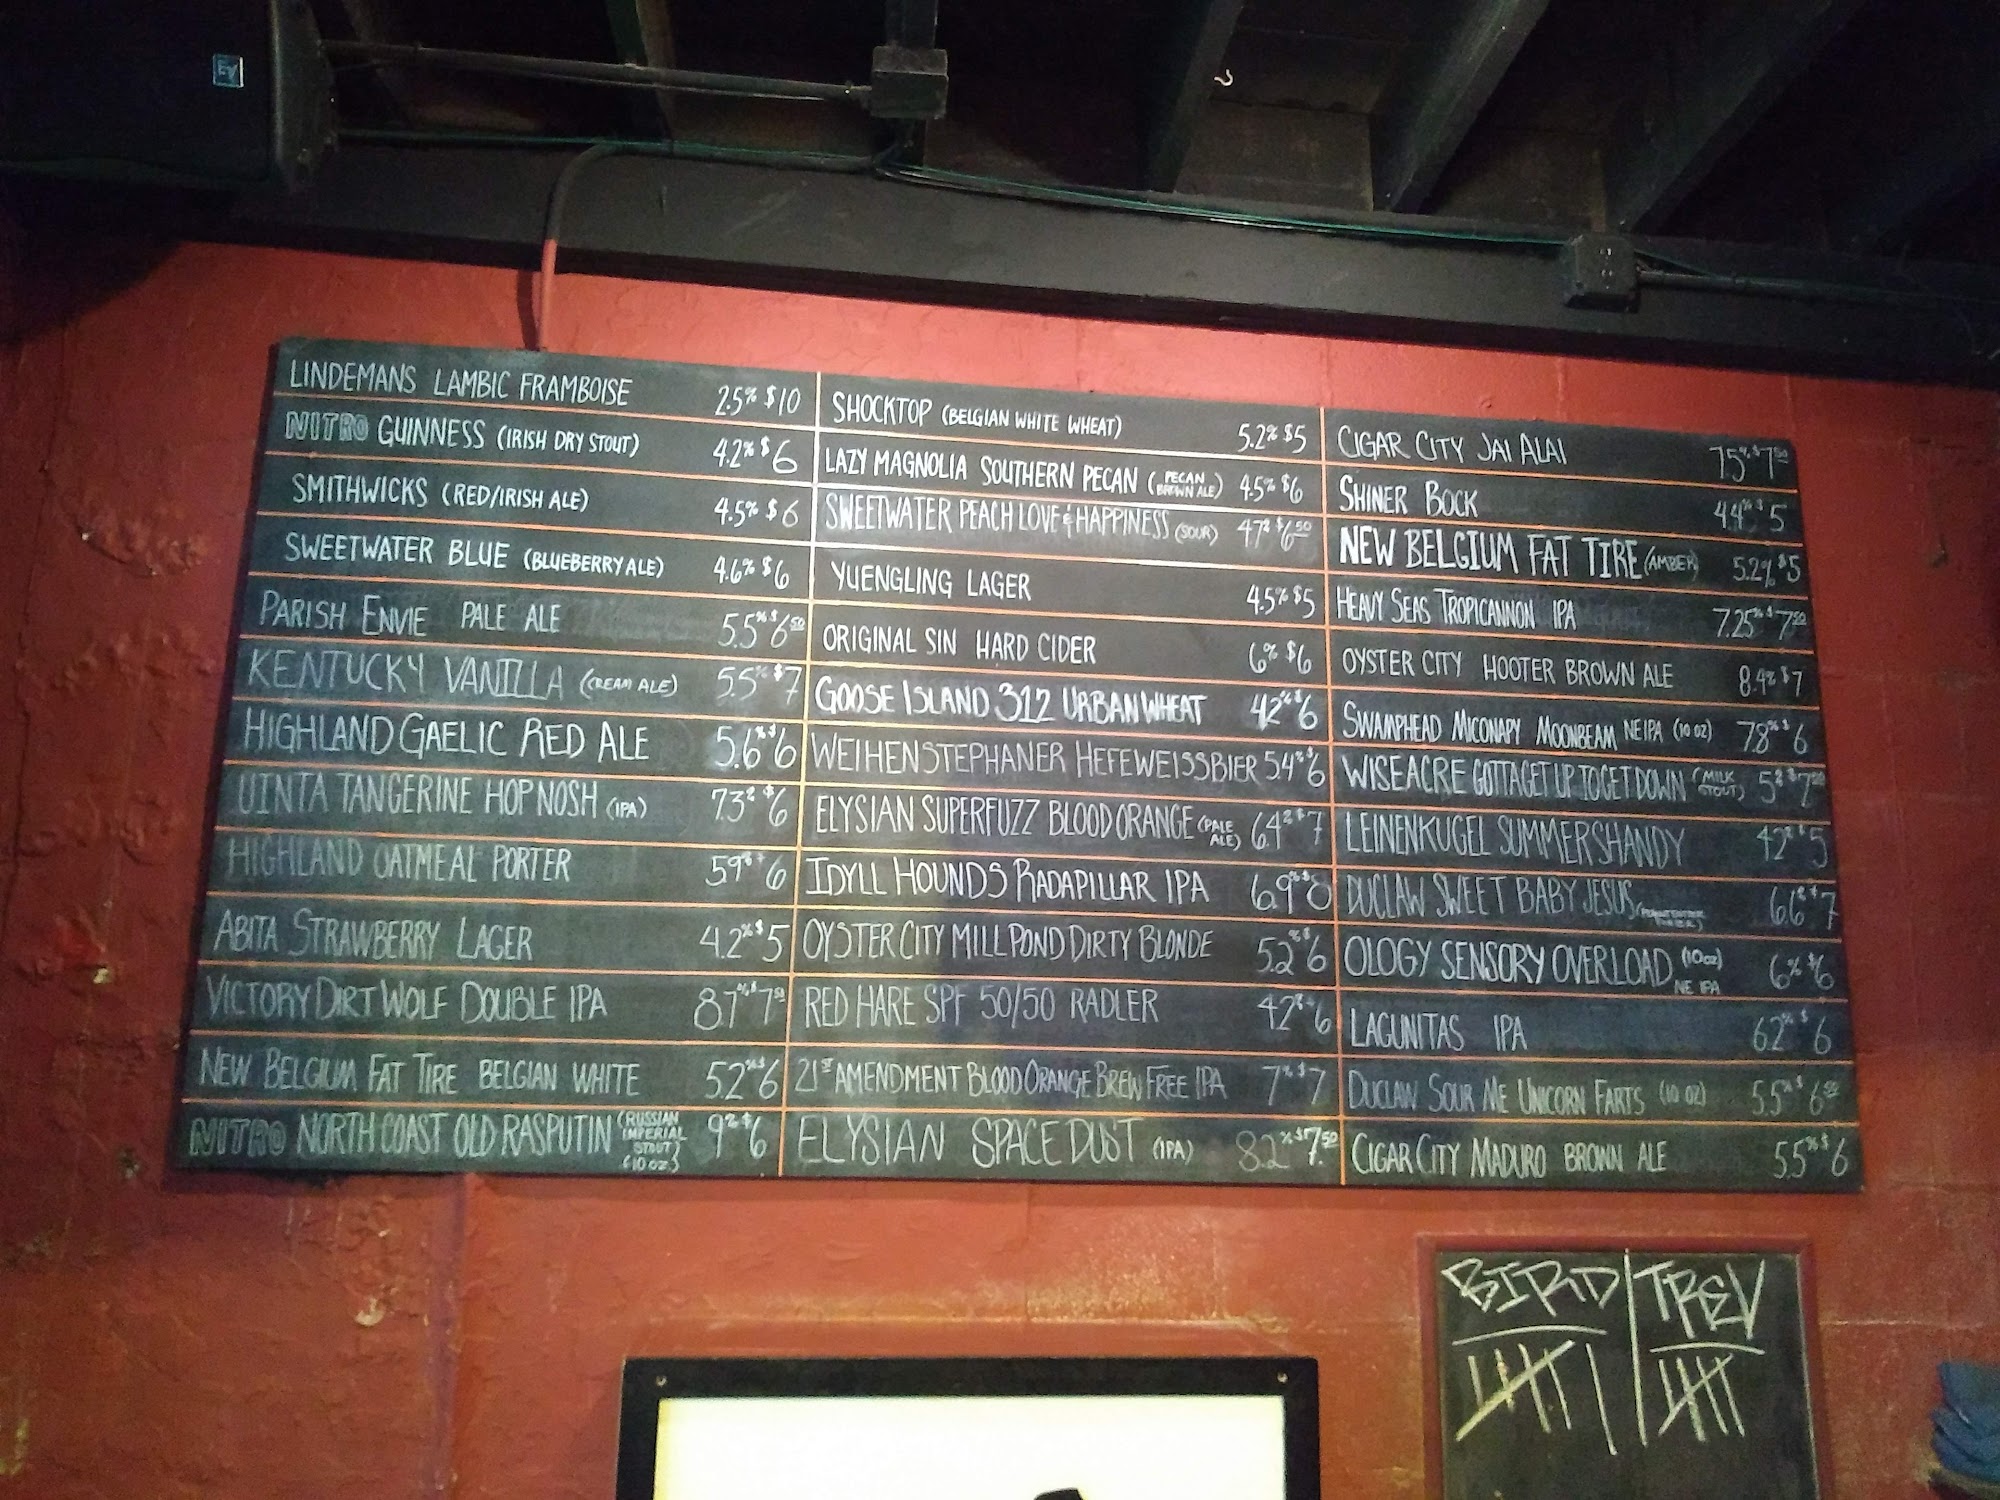 LINDEMANS LAMBIC FRAMBOISE 2.5% $10
NITRO GUINNESS (IRISH DRY STOUT) 4.2% $6
SMITHWICKS (RED/IRISH ALE) 4.5% $6
SWEETWATER BLUE (BLUEBERRY ALE) 4.6% $6
PARISH ENVIE PALE ALE 5.5% $6.50
KENTUCKY VANILLA (CREAM ALE) 5.5% $7
HIGHLAND GAELIC RED ALE 5.6% $6
UINTA TANGERINE HOP NOSH (IPA) 7.3% $6
HIGHLAND OATMEAL PORTER 5.9% $6
ABITA STRAWBERRY LAGER 4.2% $5
VICTORY DIRT WOLF DOUBLE IPA 8.7% $7.50
NEW BELGIUM FAT TIRE BELGIAN WHITE 5.2% $6
NITRO NORTH COAST OLD RASPUTIN (RUSSIAN IMPERIAL STOUT) (10 OZ.) 9% $6
SHOCKTOP (BELGIAN WHITE WHEAT) 5.2% $5
LAZY MAGNOLIA SOUTHERN PECAN (PECAN BROWN ALE) 4.5% $6
SWEETWATER PEACH LOVE & HAPPINESS (SOUR) 4.7% $6.50
YUENGLING LAGER 4.5% $5
ORIGINAL SIN HARD CIDER 6% $6
GOOSE ISLAND 312 URBAN WHEAT 4.2% $6
WEIHENSTEPHANER HEFEWEISSBIER 5.4% $6
ELYSIAN SUPERFUZZ BLOOD ORANGE (PALE ALE) 6.4% $7
IDYLL HOUNDS RADAPILLAR IPA 6.9% $8
OYSTER CITY MILL POND DIRTY BLONDE 5.2% $6
RED HARE SPF 50/50 RADLER 4.2% $6
21ST AMENDMENT BLOOD ORANGE BREW FREE IPA 7% $7
ELYSIAN SPACE DUST (IPA) 8.2% $7.50
CIGAR CITY JAI ALAI 7.5% $7.50
SHINER BOCK 4.4% $5
NEW BELGIUM FAT TIRE (AMBER) 5.2% $5
HEAVY SEAS TROPICANNON IPA 7.25% $7.50
OYSTER CITY HOOTER BROWN ALE 8.4% $7
SWAMPHEAD MICONAPY MOONBEAM NEIPA (10 OZ) 7.8% $6
WISEACRE GOTTA GET UP TO GET DOWN (MILK STOUT) 5% $7.50
LEINENKUGEL SUMMER SHANDY 4.2% $5
DUCLAW SWEET BABY JESUS 6.6% $7
OLOGY SENSORY OVERLOAD (10 OZ) NE IPA 6% $6
LAGUNITAS IPA 6.2% $6
DUCLAW SOUR ME UNICORN FARTS (10 OZ) 5.5% $6.50
CIGAR CITY MADURO BROWN ALE 5.5% $6
BIRD TREV